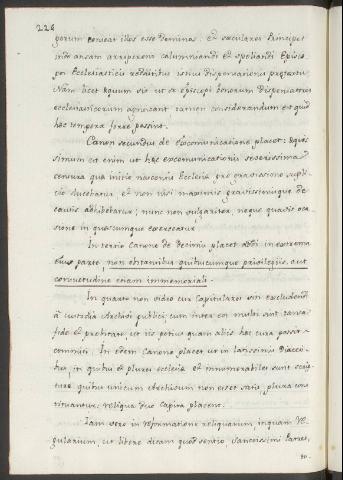 226
gorum censeat illos esse Dominos, et sæculares Principes
inde ansam arriperent calumniandi et spoliandi Episco-
pos Ecclesiasticis redditibus istius dispensationis prætextu.
Nam licet æquum sit ut sa Episcopi bonorum dispensatores
ecclesiasticorum agnoscant tamen considerandum est quid
hæc tempora ferre possint.
Canon secundus de excomunicatione placet: æquis-
simum est enim ut hæc excomunicationis severissima
censura quæ initio nascentis Ecclesiæ pro gravissimo suppli-
cio ducebatur et non nisi maximis gravissimisque de
causis adhibebatur; nunc non vulgariter, neque quavis oca-
sione in quoscumque exerceatur
In tertio Canone de Decimis placet addi in extrema
parte, non obstantibus quibuscumque privilegiis, aut
consuetudine etiam immemoriali.
In quarto non video cur Capitulares sint excludendi
à custodia Archivi publici, cum inter eos multi sint tanta
fide et probitate ut vis potius quam aliis hæc cura possit
committi. In eodem Canone placet ut in latissimis Diæce-
sibus, in quibus et plures ecclesiæ et innumerabiles sunt scrip-
turæ quibus unicum Archivum non esset satis, plura cons-
tituantur, reliqua duo capita placent.
Iam vero in reformatione religiosorum, inquam re-
gularium, ut libere dicam quod sentio, Sanctissimi Patres,